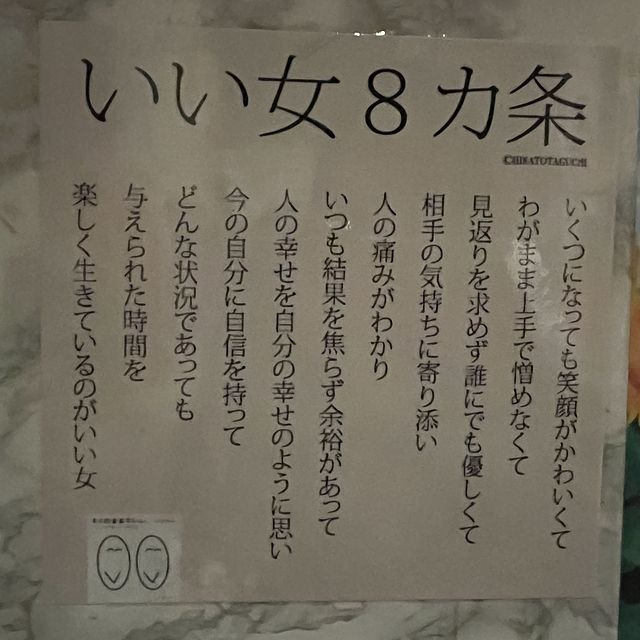 いい女８カ条
©CHINATOTAGUCHI
いくつになっても笑顔がかわいくて
わがまま上手で憎めなくて
見返りを求めず誰にでも優しくて
相手の気持ちに寄り添い
人の痛みがわかり
いつも結果を焦らず余裕があって
人の幸せを自分の幸せのように思い
今の自分に自信を持って
どんな状況であっても
与えられた時間を
楽しく生きているのがいい女